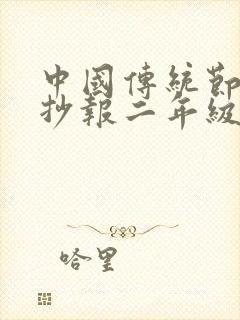 中國傳統節
抄報二年級
哈里